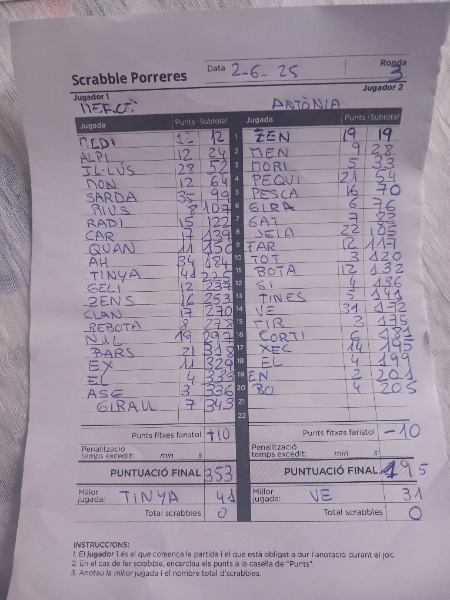 Scrabble Porreres Data 2-6-25 Ronda 3
Jugador 1 Jugador 2
MERCÈ ANTÒNIA
Jugada Punts Subtotal Jugada Punts Subtotal
MEDI 12 12 1 ZEN 19 19
ALPÍ 12 24 2 MEN 9 28
IL·LÚS 28 52 3 MORI 5 33
MON 12 64 4 PEQUI 21 54
SARDA 35 99 5 PESCA 16 70
RIUS 8 107 6 GIRA 6 76
RADI 15 122 7 GAT 7 83
CAR 17 139 8 SEIA 22 105
QUAN 11 150 9 FAR 12 117
AH 34 184 10 TOT 3 120
TINYA 41 225 11 BOTA 12 132
GELI 12 237 12 SI 4 136
ZENS 16 253 13 TINES 5 141
CLAN 17 270 14 VE 31 172
REBOTA 8 278 15 TIR 3 175
NUL 19 297 16 CORTI 6 181
BARS 21 318 17 XEC 195
EX 11 329 18 EL 4 199
EL 4 333 19 EN 2 201
ASE 3 336 20 BO 4 205
GIRAU 7 343 21
22
Punts fitxes faristol +10 Punts fitxes faristol -10
Penalització temps excedit: min s Penalització temps excedit: min s
PUNTUACIÓ FINAL 353 PUNTUACIÓ FINAL 195
Millor jugada: TINYA 41 Millor jugada: VE 31
Total scrabbles 0 Total scrabbles 0
INSTRUCCIONS:
1. El jugador 1 és el que comença la partida i el que està obligat a dur l'anotació durant el joc.
2. En el cas de fer scrabble, encerclau els punts a la casella de "Punts".
3. Anotau la millor jugada i el nombre total d'scrabbles.